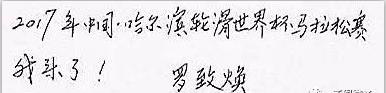 2017年中国·哈尔滨轮滑世界杯马拉松赛
我来了! 罗致焕